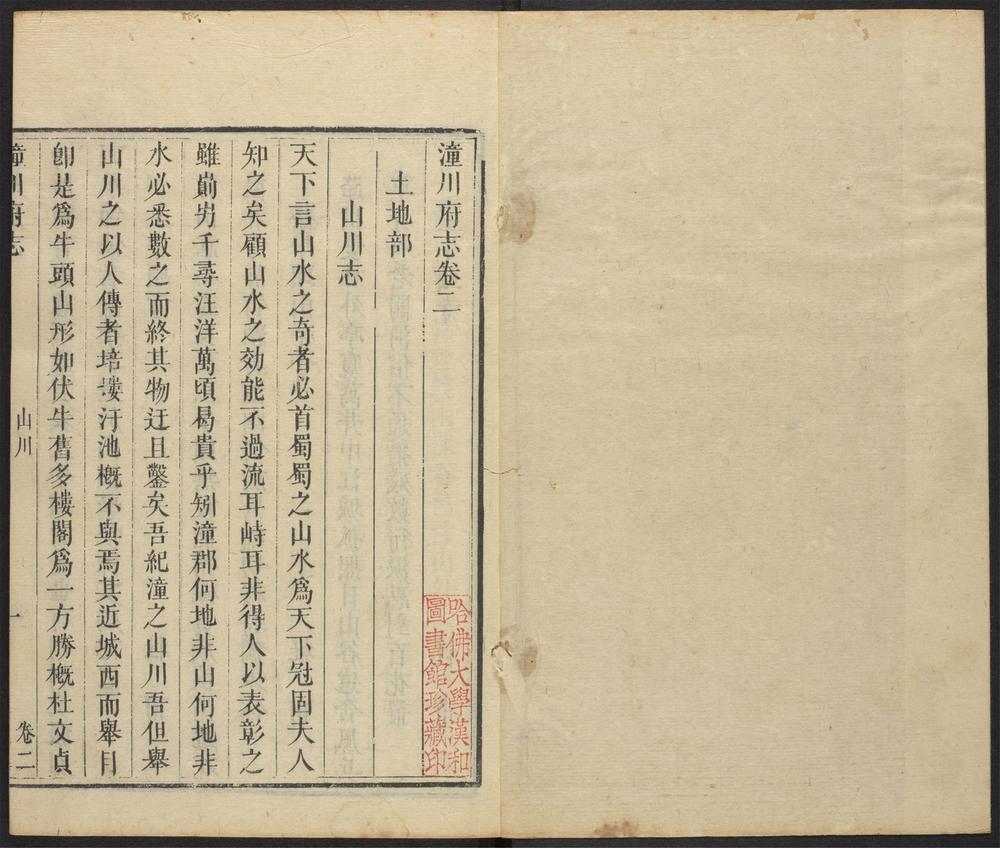 潼川府志卷二
土地部
山川志
天下言山水之奇者必首蜀蜀之山水爲天下冠固夫人
知之矣顧山水之効能不過流耳峙耳非得人以表彰之
雖巋屴千尋汪洋萬頃曷貴乎矧潼郡何地非山何地非
水必悉數之而終其物迂且鑿矣吾紀潼之山川吾但舉
山川之以人傳者培塿汙池槪不與焉其近城西而舉目
卽是爲牛頭山形如伏牛舊多樓閣爲一方勝槪杜文貞
潼川府志
山川
一
卷二
哈佛大學漢和
圖書館珍藏印